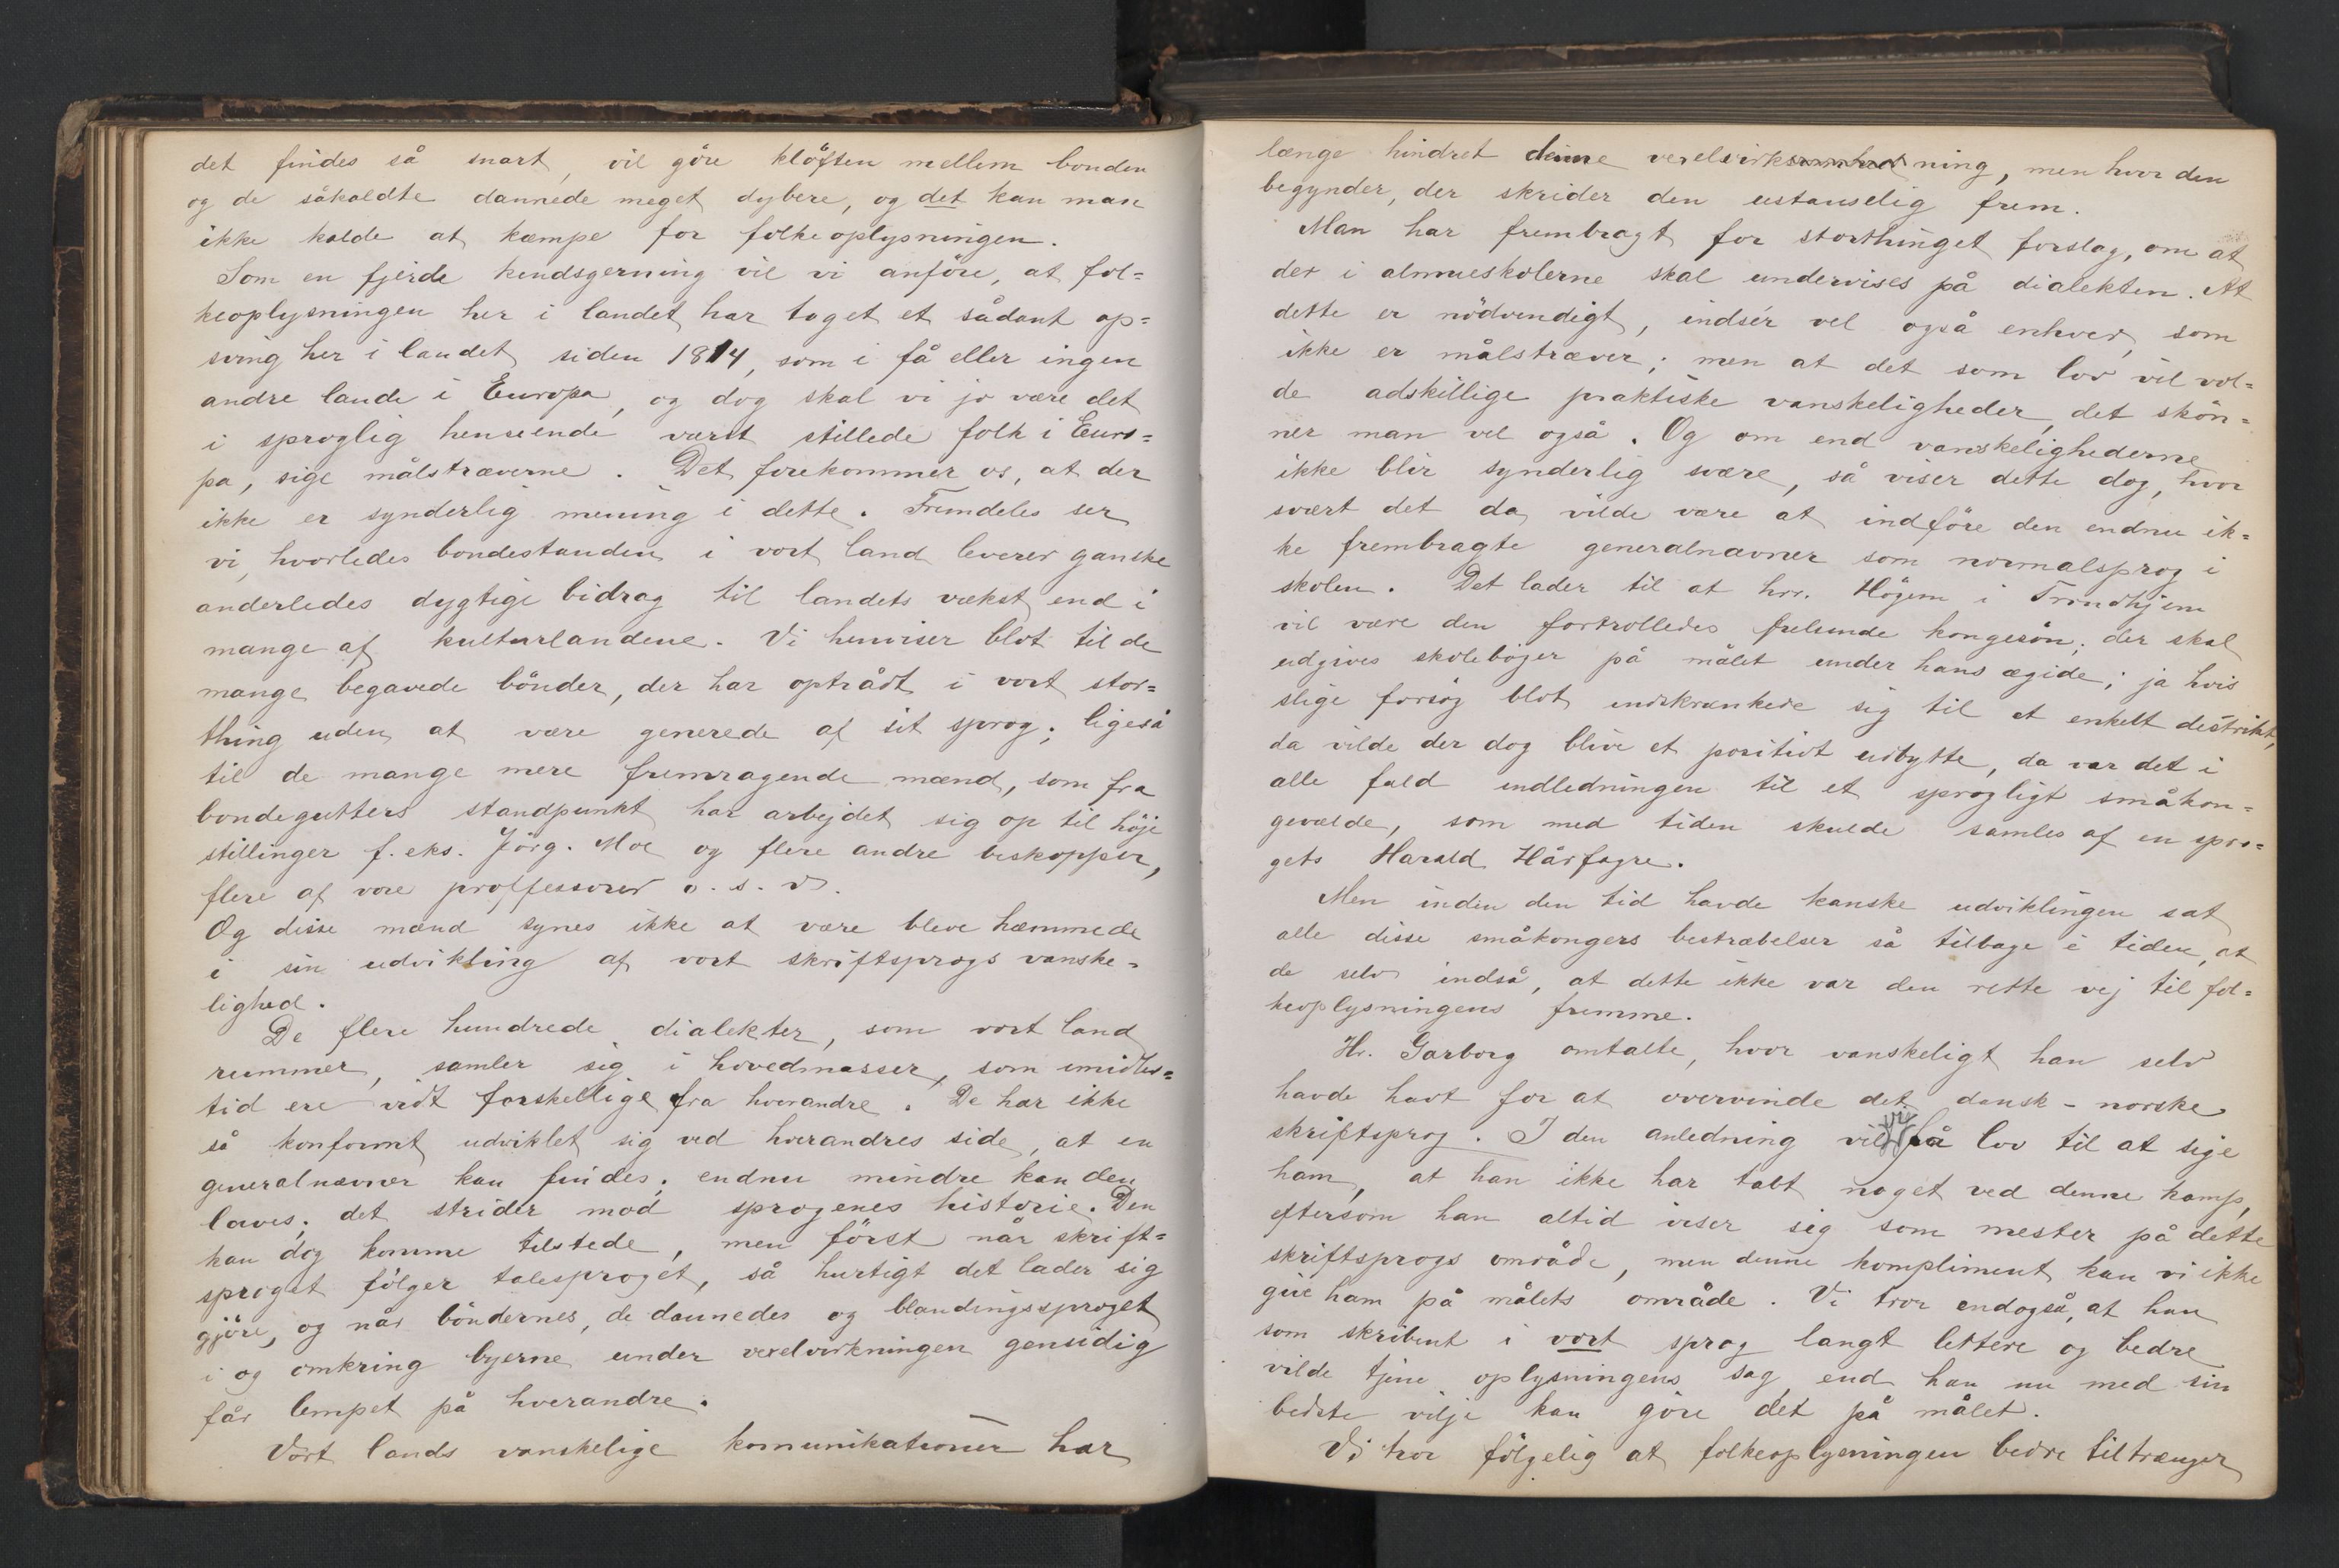 det findes så snart, vil göre klöften mellem bonden
og de såkaldte dannede meget dybere, og det kan man
ikke kalde at kæmpe for folkeoplysningen.
Som en fjerde kendsgerning vil vi anföre, at fol=
keoplysningen her i landet har taget et sådant op=
sving her i landet siden 1814, som i få eller ingen
andre lande i Europa, og dog skal vi jo være det
i sproglig henseende værst stillede folk i Euro=
pa, sige målstræverne. Det forekommer os, at der
ikke er synderlig mening i dette. Fremdeles ser
vi, hvorledes bondestanden i vort land leverer ganske
anderledes dygtige bidrag til landets vækst end i
mange af kulturlandene. Vi henviser blot til de
mange begavede bönder, der har optrådt i vort stor=
thing uden at være generede af sit sprog; ligeså
til de mange mere fremragende mænd, som fra
bondegutters standpunkt har arbejdet sig op til höje
stillinger f. eks. Jörg. Moe og flere andre biskopper,
flere af vore proffessorer o. s. v.
Og disse mænd synes ikke at være bleve hæmmede
i sin udvikling af vort skriftsprogs vanske=
lighed.
De flere hundrede dialekter, som vort land
rummer, samler sig i hovedmasser, som imidler=
tid ere vidt forskellige fra hverandre. De har ikke
så konformt udviklet sig ved hverandres side, at en
generalnævner kan findes; endnu mindre kan den
laves; det strider mod sprogenes historie. Den
kan dog komme tilstede, men först når skrift=
sproget fölger talesproget, så hurtigt det lader sig
gjöre, og når böndernes, de dannedes og blandingssproget
i og omkring byerne under vexelvirkningen gensidig
får lempet på hverandre.
Vort lands vanskelige komunikationer har
længe hindret denne vexelvirkning, men hvor den
begynder, der skrider den ustanselig frem.
Man har frembragt for storthinget forslag, om at
der i almueskolerne skal undervises på dialekten. At
dette er nödvendigt, indsér vel også enhver, som
ikke er målstræver; men at det som lov vil vol=
de adskillige praktiske vanskeligheder, det skön=
ner man vel også. Og om end vanskelighederne
ikke blir synderlig svære, så viser dette dog, hvor
svært det da vilde være at indföre den endnu ik=
ke frembragte generalnævner som normalsprog i
skolen. Det lader til at hrr. Högem i Trondhjem
vil være den fortrolledes frelsende kongesön; der skal
udgives skoleböger på målet under hans ægide; ja hvis
slige forsög blot indskrænkede sig til et enkelt destrikt,
da vilde der dog blive et positivt udbytte, da var det i
alle fald indledningen til et sprogligt småkon=
gevælde, som med tiden skulde samles af en spro=
gets Harald Hårfagre.
Men inden den tid havde kanske udviklingen sat
alle disse småkongers bestræbelser så tilbage i tiden, at
de selv indså, at dette ikke var den rette vej til fol=
keoplysningens fremme.
Hr. Garborg omtalte, hvor vanskeligt han selv
havde havt for at overvinde det dansk-norske
skriftsprog. I den anledning vil vi få lov til at sige
ham, at han ikke har tabt noget ved denne kamp,
eftersom han altid viser sig som mester på dette
skriftsprogs område, men denne kompliment kan vi ikke
give ham på målets område. Vi tror endogså, at han
som skribent i vort sprog langt lettere og bedre
vilde tjene oplysningens sag, end han nu med sin
bedste vilje kan göre det på målet.
Vi tror fölgelig at folkeoplysningen bedre tiltrænger